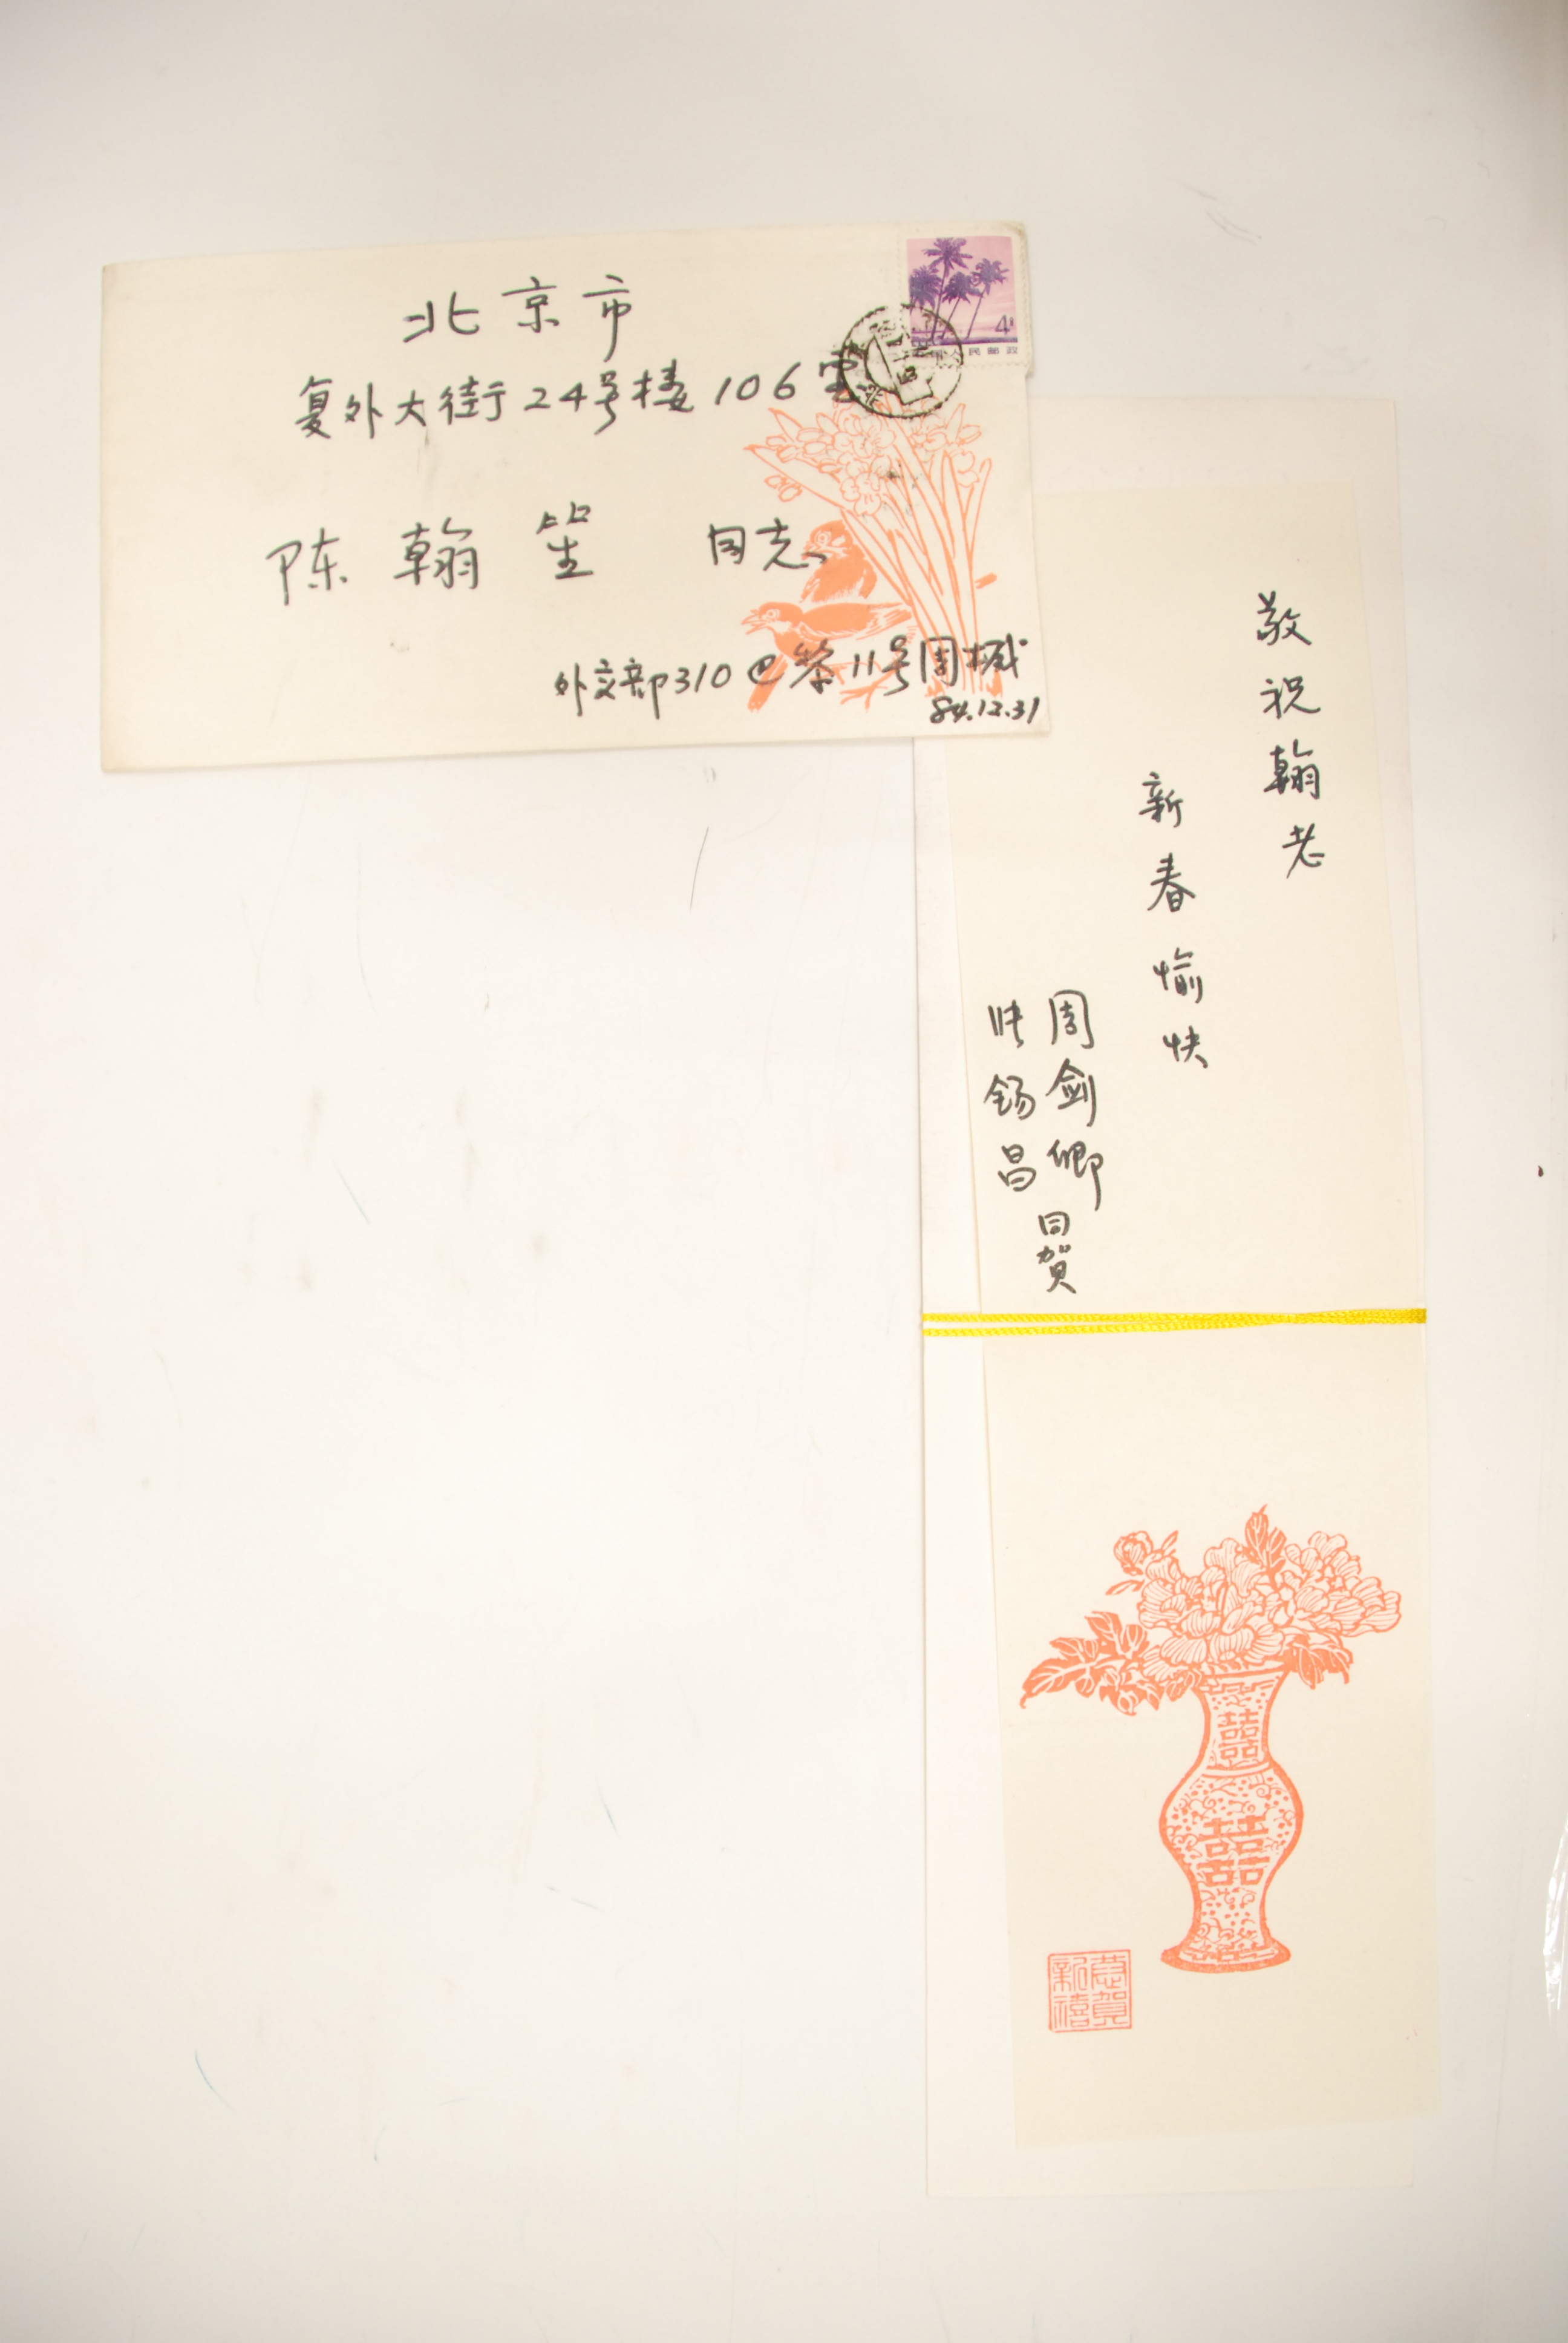 北京市
复外大街24号楼106室
陈翰笙 同志
外交部310 11号周
84.12.31
4
民邮政
敬祝翰老
新春愉快
周剑卿
张锡昌
同贺
囍
囍
恭贺
新禧